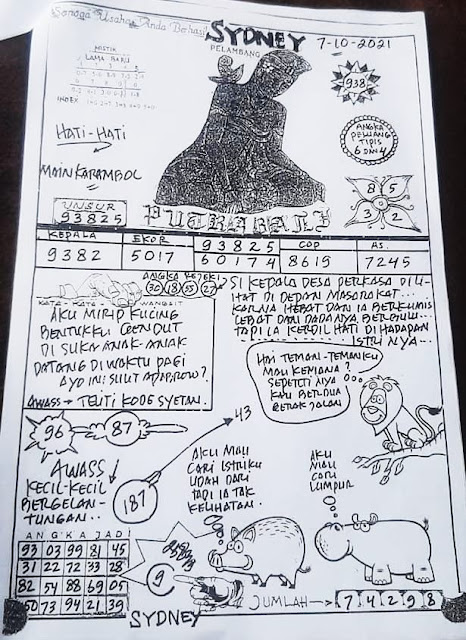 Semoga Usaha Anda Berhasil
SYDNEY
7-10-2021
PELAMBANG
MISTIK
LAMA BARU
INDEX
938
ANGKA
PELUANG
TIPIS
6 DAN 4
HATI-HATI
MAIN KARAMBOL
UNSUR
93825
PUTRA BALI
8 5
3 2
KEPALA EKOR 93825 COP AS.
9382 5017 60174 8619 7245
ANGKA REJEKI
30 18 55 27
KATA-KATA WANGSIT
AKU MIRIP KUCING
BENTUKKU GENDUT
DI SUKA ANAK-ANAK
DATANG DI WAKTU PAGI
AYO INI SULUT APABROW?
AWASS → TELITI KODE SYETAN.
SI KEPALA DESA PERKASA DI LI-
HAT DI DEPAN MASARAKAT...
KARNIA HEBAT DAN IA BERKUMIS
LEBAT DAN DADANYA BERBULU...
TAPI IA KERDIL HATI DI HADAPAN
ISTRI NYA...
HAI TEMAN-TEMANKU
MAU KEMANA?
SEPERTI NYA
KAU BERDUA
BERAK JALAN
96
87
43
187
AWASS
KECIL-KECIL
BERGELAN-
TUNGAN..
AKU MAU
CARI ISTRIKU
UDAH DARI
TADI IA TAK
KELIHATAN.
AKU
MAU
CARI
LUMPUR
ANGKA JADI
93 03 99 81 45
31 22 72 33 28
82 54 88 69 05
50 73 94 21 39
9
SYDNEY
JUMLAH → 7 4 2 9 8